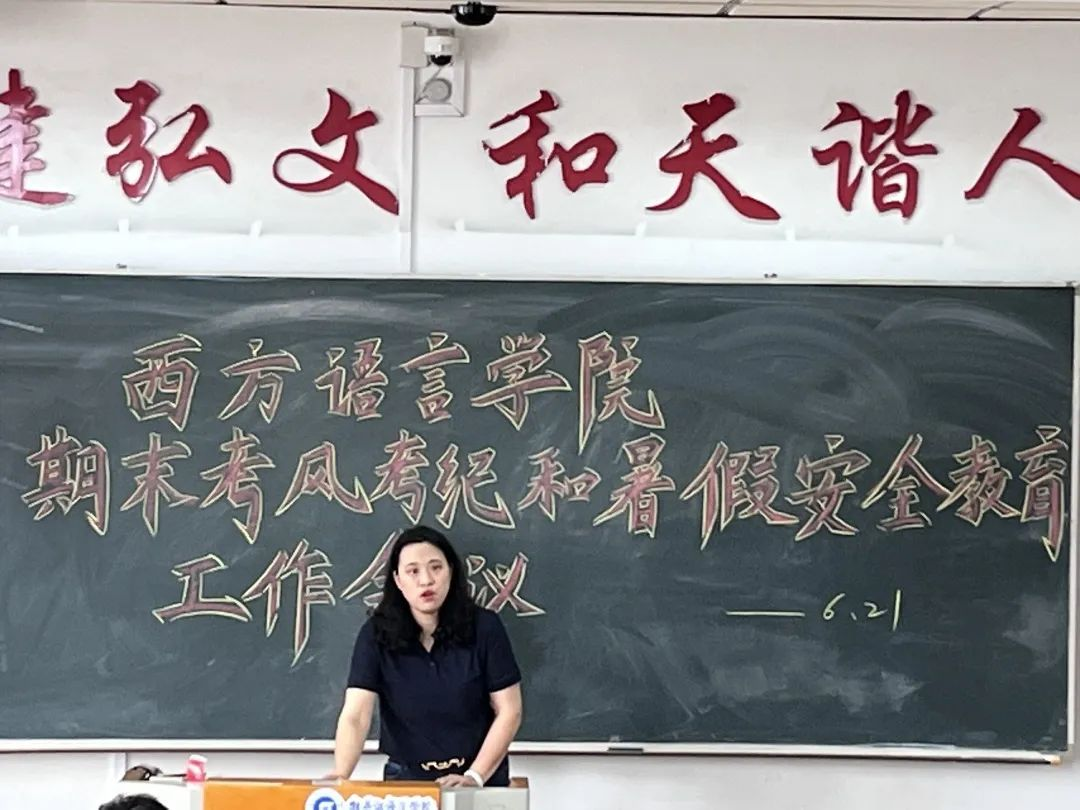 建弘文和天谐人
西方语言学院
期末考风考纪和暑假安全教育
工作会议
—— 6.21